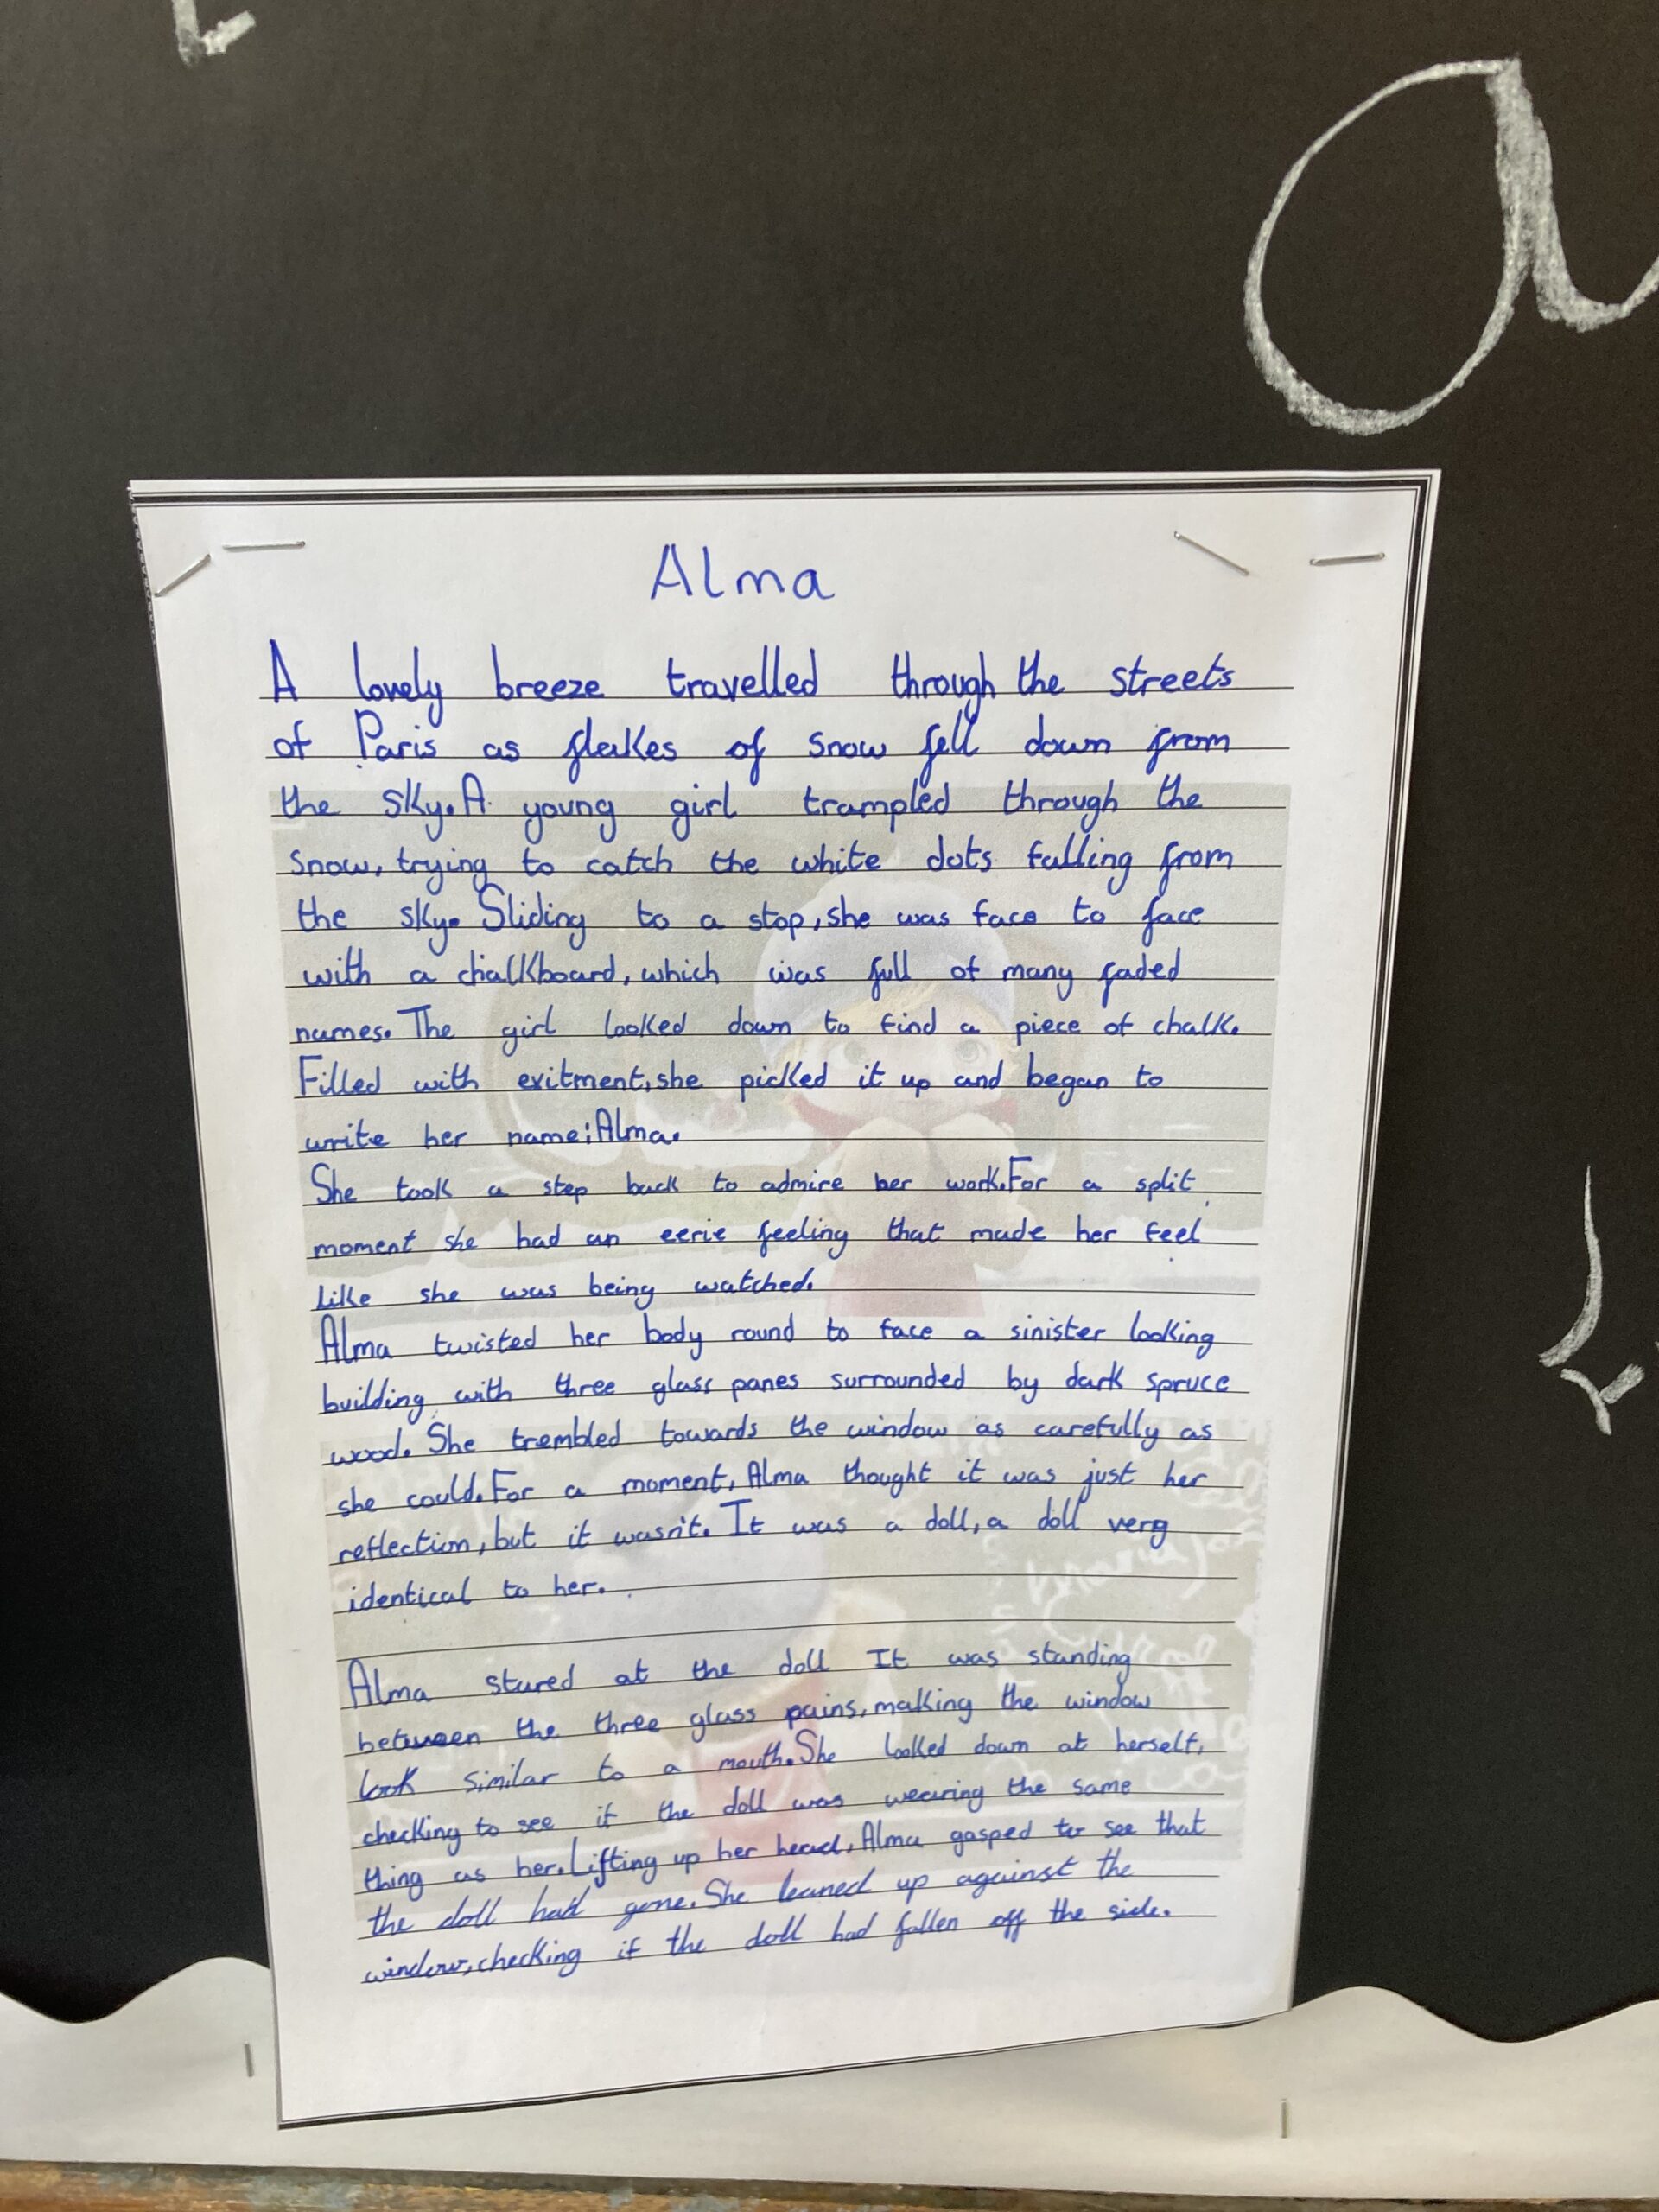 a
Alma
A lovely breeze travelled through the streets
of Paris as flakes of snow fell down from
the sky. A young girl trampled through the
snow, trying to catch the white dots falling from
the sky. Sliding to a stop, she was face to face
with a chalkboard, which was full of many faded
names. The girl looked down to find a piece of chalk.
Filled with exitment, she picked it up and began to
write her name: Alma.
She took a step back to admire her work. For a split
moment she had an eerie feeling that made her feel
like she was being watched.
Alma twisted her body round to face a sinister looking
building with three glass panes surrounded by dark spruce
wood. She trembled towards the window as carefully as
she could. For a moment, Alma thought it was just her
reflection, but it wasn't. It was a doll, a doll very
identical to her.
Alma stared at the doll It was standing
between the three glass pains, making the window
look similar to a mouth. She looked down at herself,
checking to see if the doll was wearing the same
thing as her. Lifting up her head, Alma gasped to see that
the doll had gone. She leaned up against the
window, checking if the doll had fallen off the side.